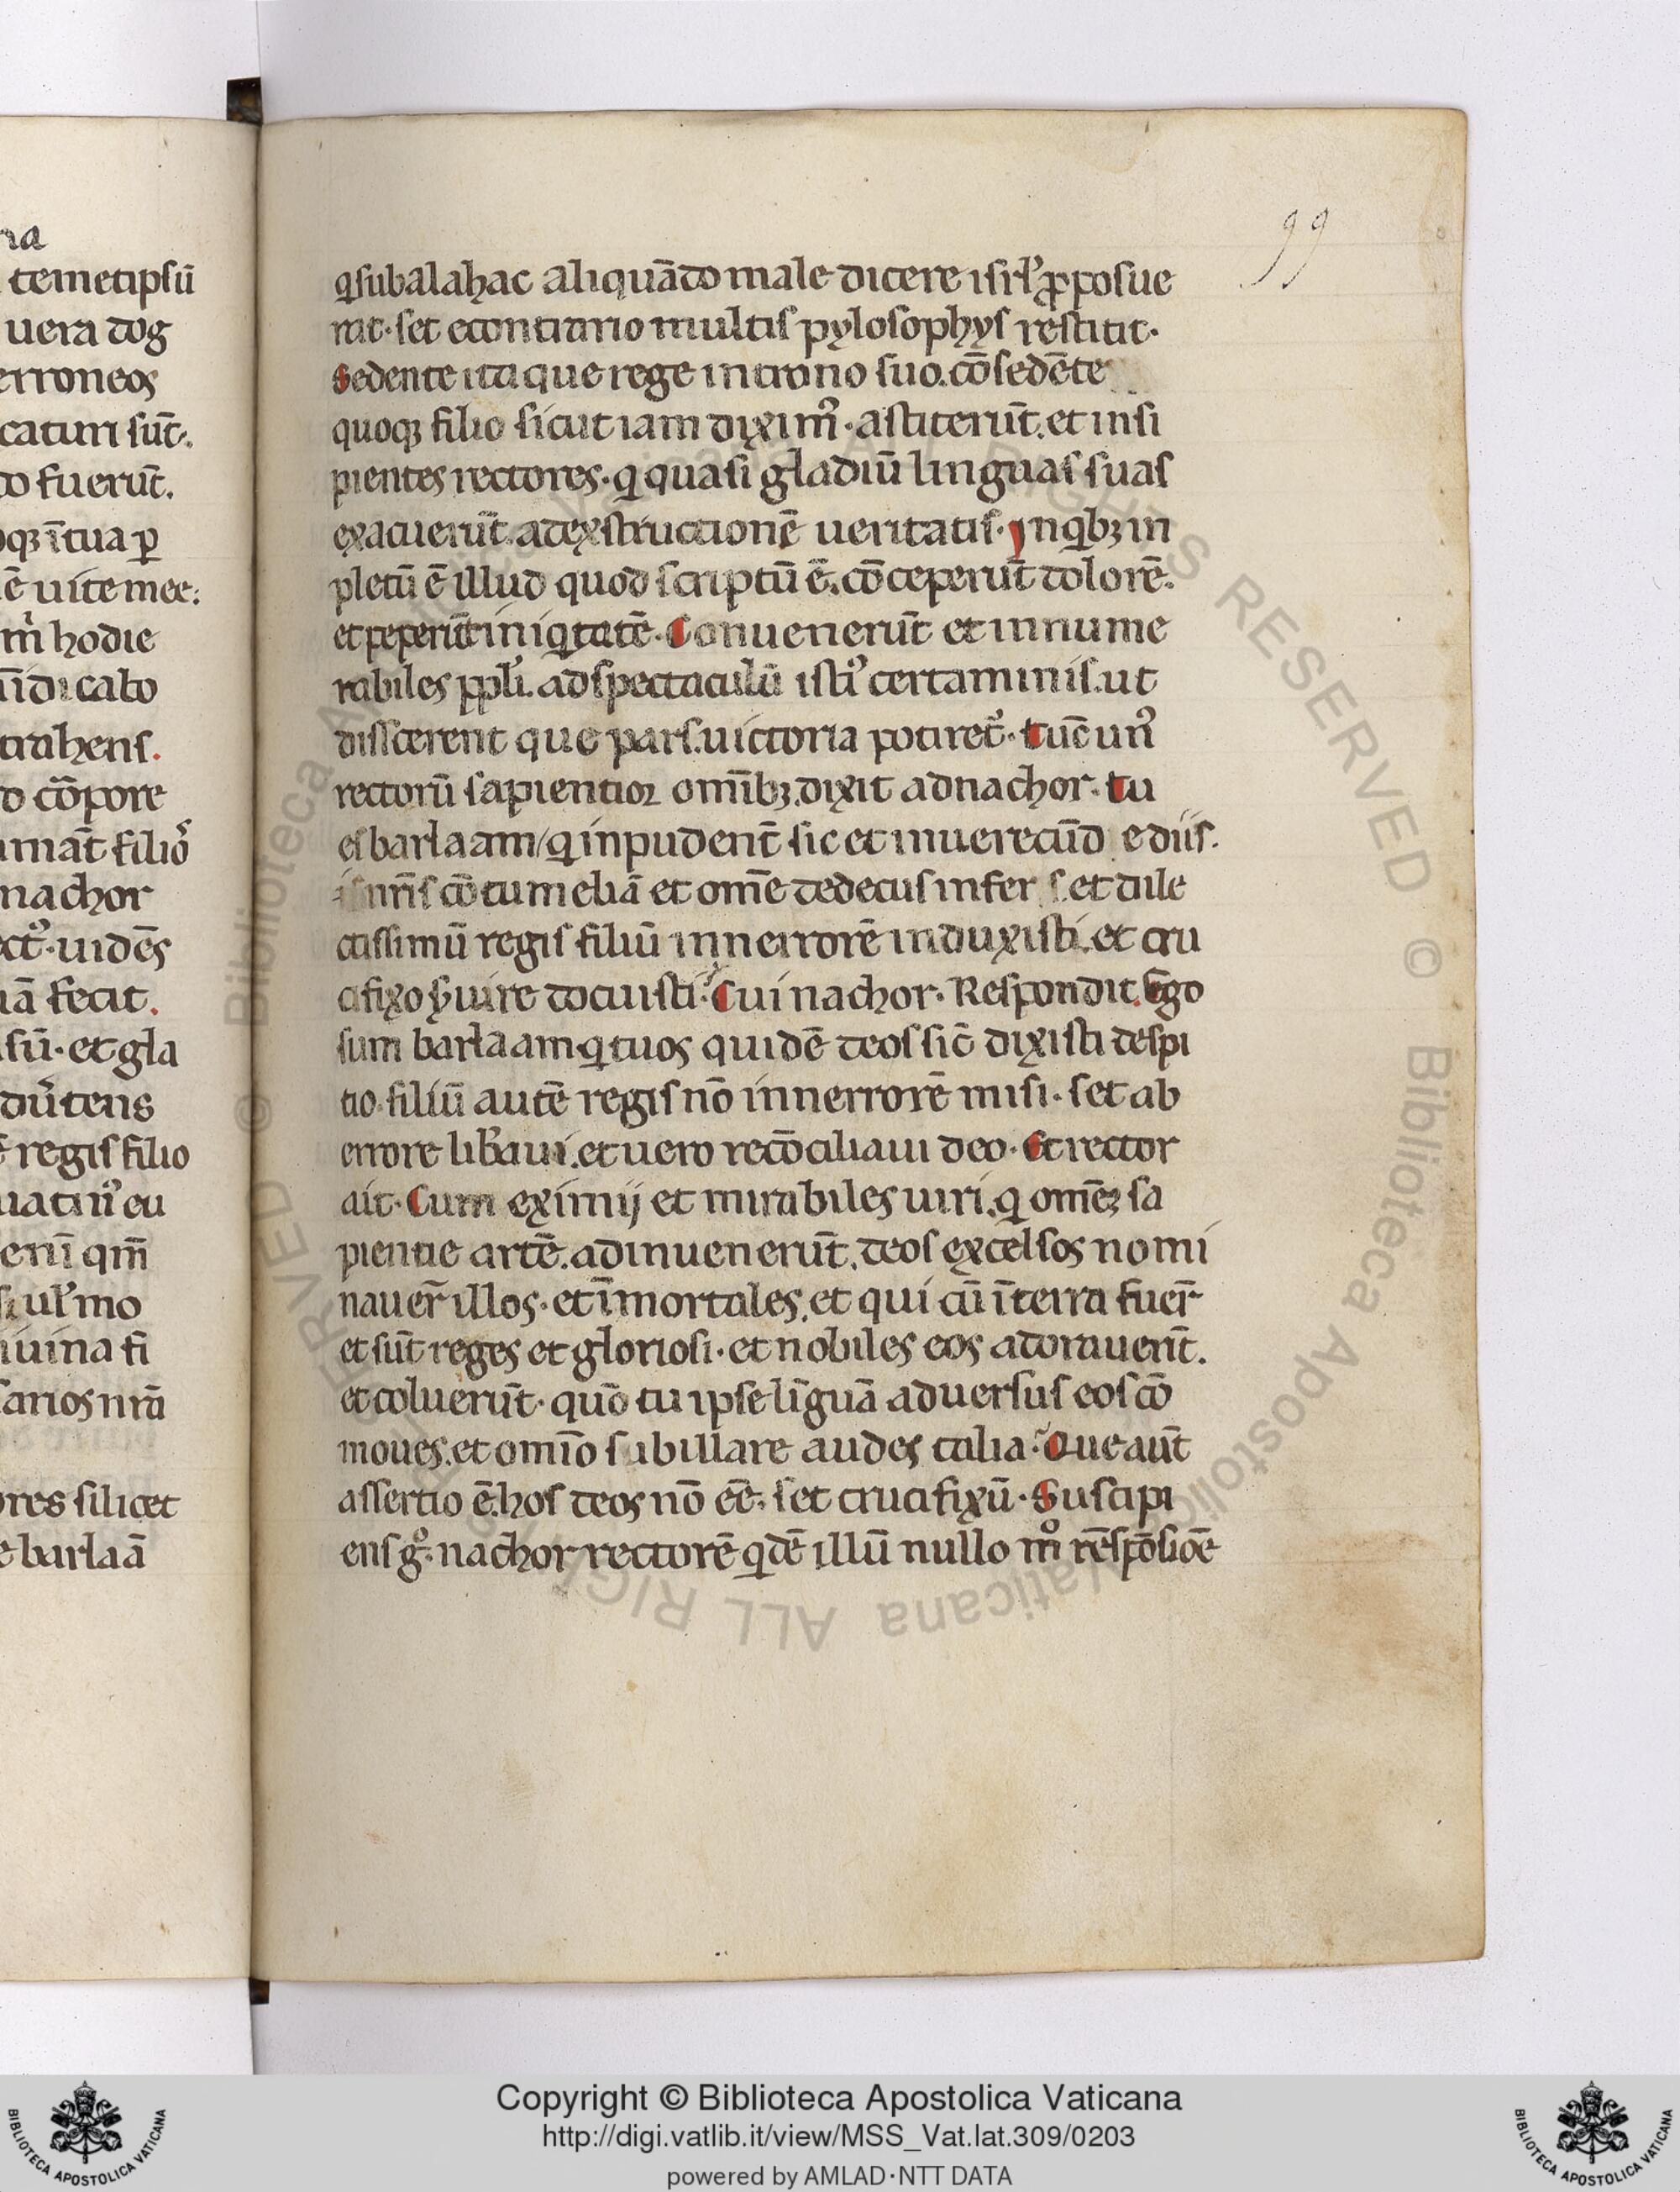 99
na
temetipsū
uera dog
erroneos
caturi sūt.
do fuerūt.
oqꝫ ītua ꝑ
ē uite mee:
hodie
dicabo
trahens.
cōpore
māt filioꝰ
nachor
uidēs
ā fecit.
sū. et gla
dūtens
regis filio
eu
enī qm̄
mo
iuina fi
sarios nr̄a
ores silicet
e barlaā
qͥ sub alahac aliquādo male dicere isrl̓ ꝓposue
rat. set econtrario multis pylosophys restitit.
Sedente itaque rege in trono suo. cōsedēte
quoqꝫ filio sicut iam diximꝰ. astiterūt. et insi
pientes rectores. qͥ quasi gladiū linguas suas
exacuerūt. adexstructionē ueritatis. Jn qͥbꝫ in
pletū ē illud quod scriptū ē. cōceperūt dolorē.
et pepererūt iniqͥtatē. Conuenerūt et innume
rabiles ppl̓i. ad spectaculū istiꝰ certaminis. ut
disscerent que pars. uictoria potiret̓. tūc unꝰ
rectorū sapientior omībꝫ. dixit ad nachor. tu
es barlaam / qͥ inpudent̄ sic et inuerecūd e diis.
nr̄is cōtumeliā et om̄e dedecus infer s. et dile
ctissimū regis filiū inn errorē induxisti. et cru
cifixo ẜuire docuisti. Cui nachor. Respondit. Ego
sum barlaam. qͥ tuos quidē deos sic̄ dixisti despi
tio. filiū autē regis nō inn errorē misi. set ab
errore lib̓aui. et uero recōciliaui deo. Et rector
ait. Cum eximij et mirabiles uiri. qͥ om̄eꝫ sa
pientie artē. adinuenerūt. deos excelsos nomi
nauer̄ illos. et īmortales. et qui cū ī terra fuer̄
et sūt reges et gloriosi. et nobiles eos adorauerūt.
et coluerūt. quō tu ipse līguā aduersus eos cō
moues. et omīo sibillare audes talia. Que aut̄
assertio ē. hos deos nō eē. set crucifixū. Suscipi
ens gͦ. nachor rectorē qͥdē illū nullo mͦ rēspōsiōe
Copyright © Biblioteca Apostolica Vaticana
http://digi.vatlib.it/view/MSS_Vat.lat.309/0203
powered by AMLAD·NTT DATA
BIBLIOTECA APOSTOLICA VATICANA
BIBLIOTECA APOSTOLICA VATICANA
© Biblioteca Apostolica Vaticana ALL RIGHTS RESERVED © Biblioteca Apostolica Vaticana ALL RIGHTS RESERVED